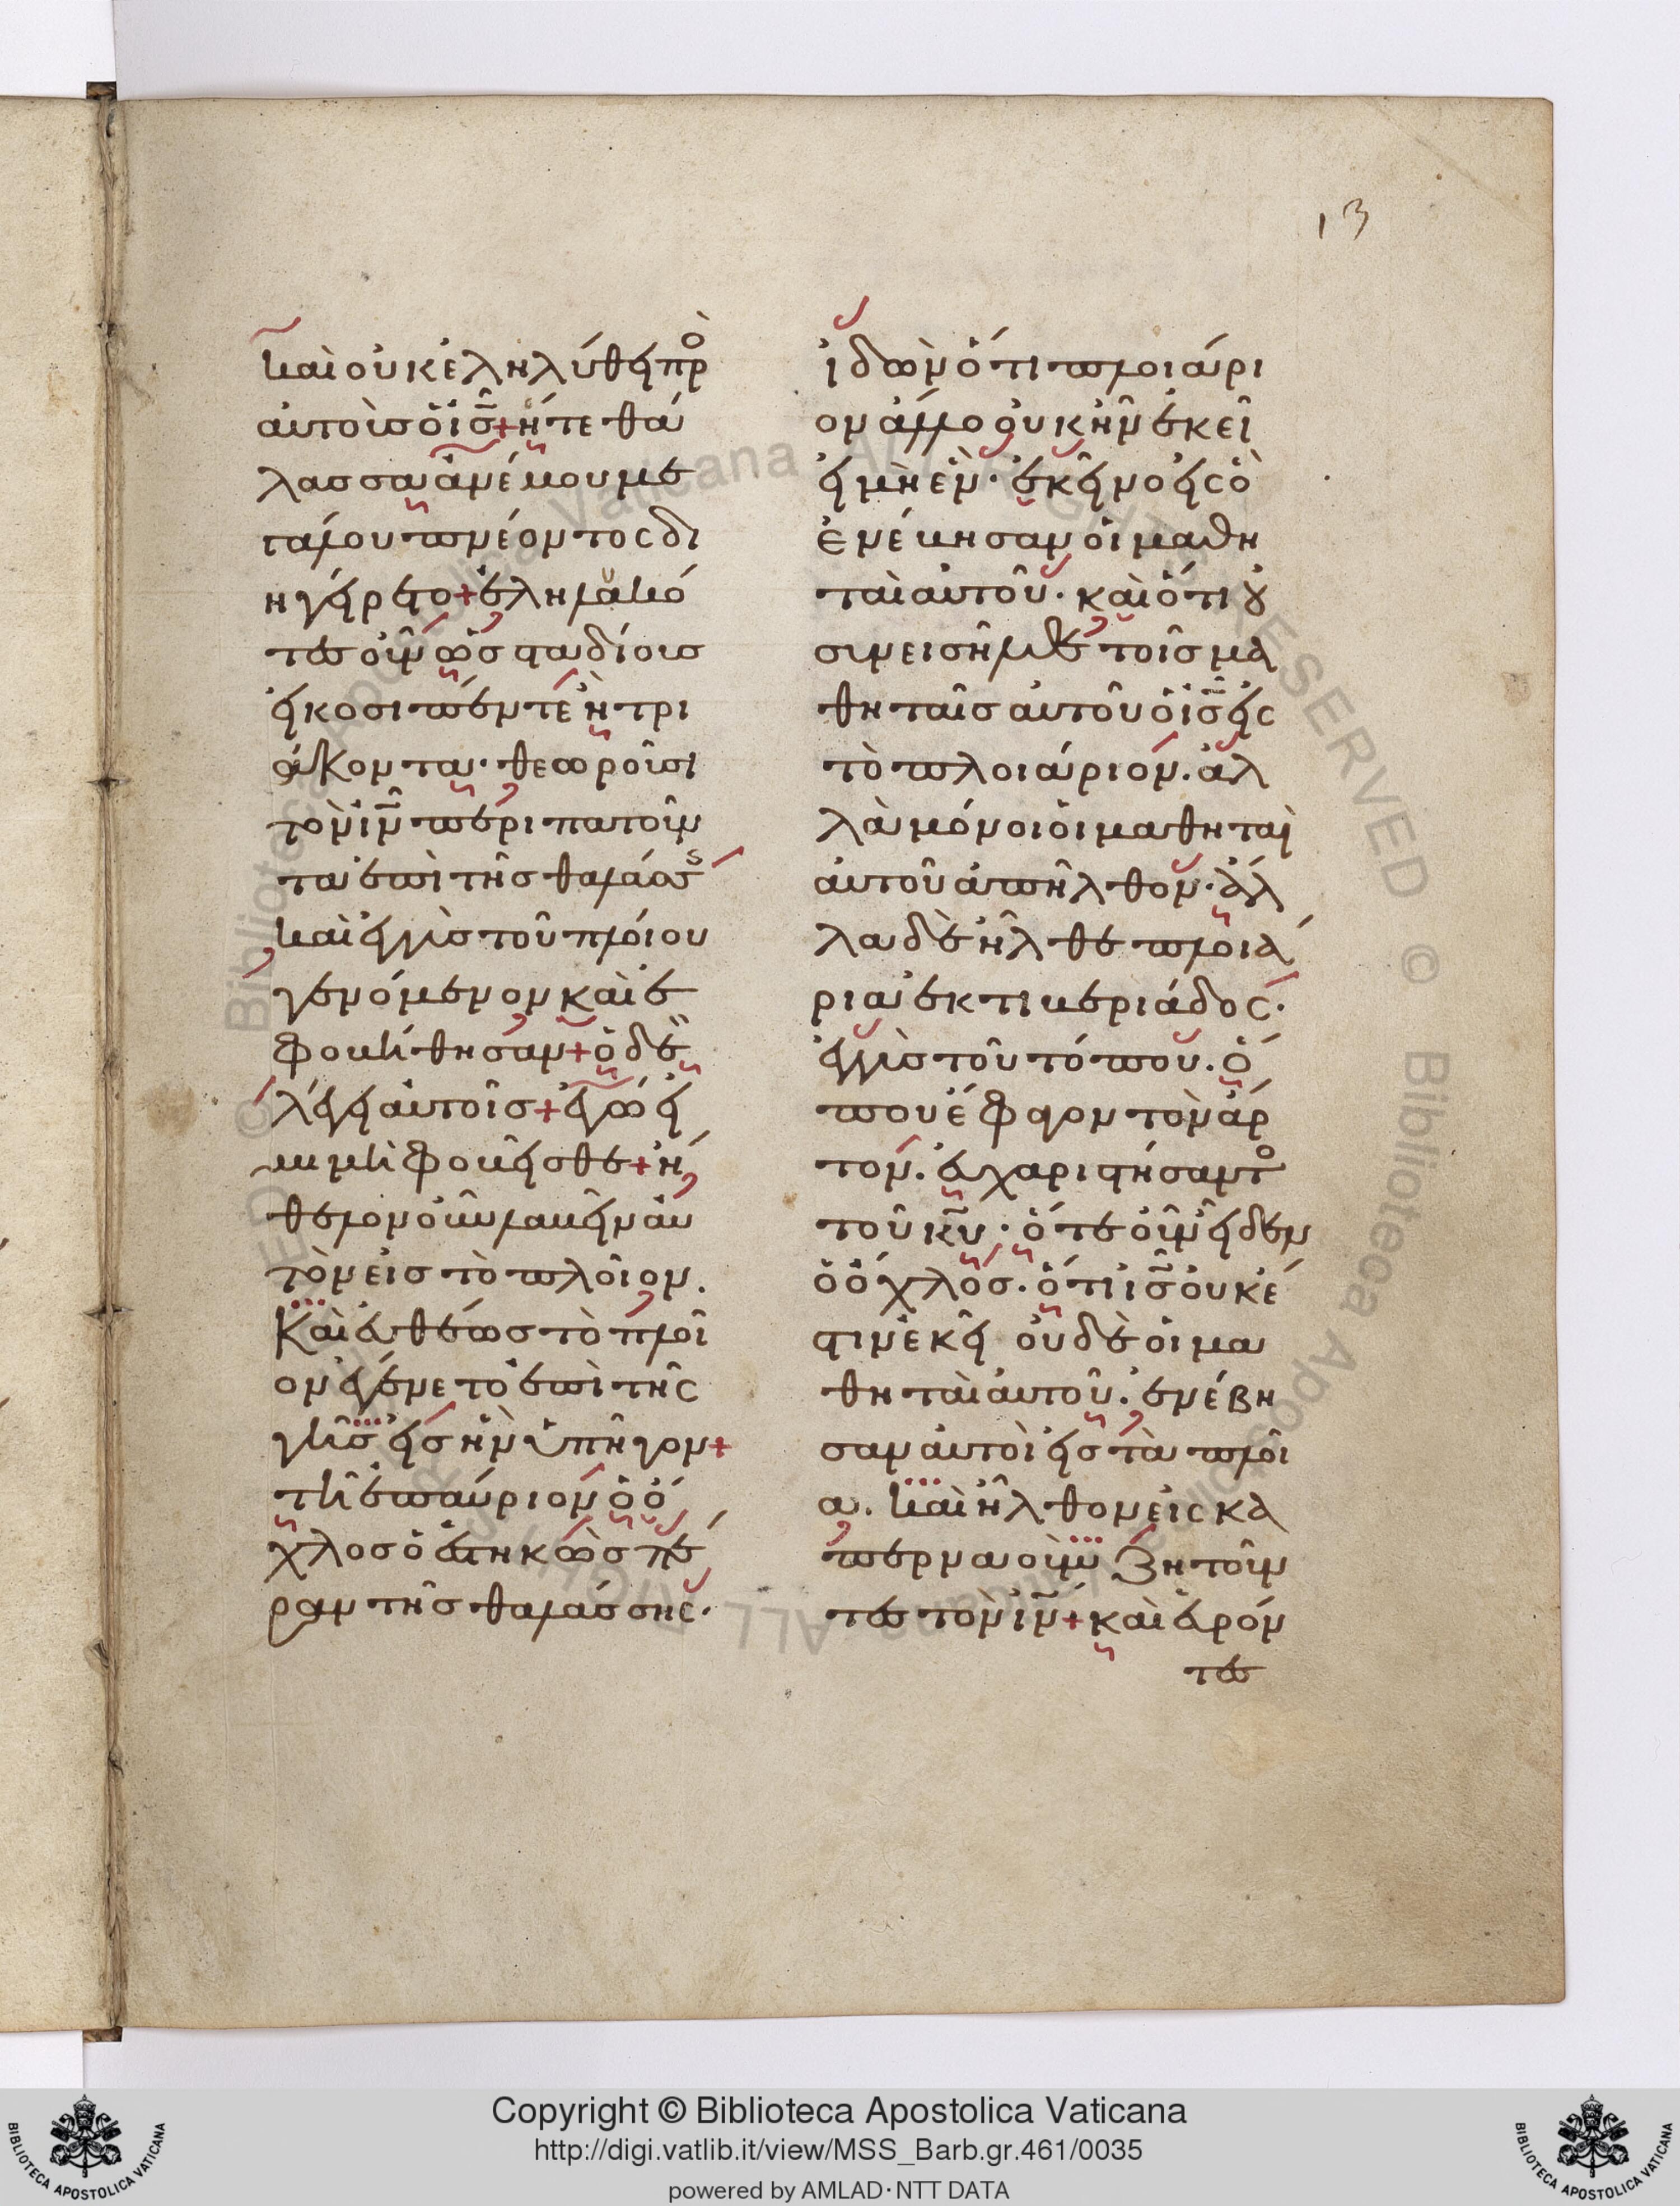 13
καὶ οὐκ ἐληλύθει πρὸ
αὐτοὺσ ὁ ισ + ἥ τε θά
λασσα ἀνέμου με
γάλου πνέοντος δι
ηγείρετο + ἐληλακό
τεσ οὖν ὡσ σταδίουσ
εἰκοσιπέντε ἢ τρι
άκοντα · θεωροῦσι
τὸν ιν περιπατοῦν
τα ἐπὶ τῆσ θαλάσσης
καὶ ἐγγὺσ τοῦ πλοίου
γενόμενον καὶ ἐ
φοβήθησαν + ὁ δὲ
λέγει αὐτοῖσ + ἐγώ εἰ
μι μὴ φοβεῖσθε + ἤ
θελον οὖν λαβεῖν αὐ
τὸν εἰσ τὸ πλοῖον.
Καὶ εὐθέωσ τὸ πλοῖ
ον ἐγένετο ἐπὶ τῆς
γῆσ εἰσ ἣν ὑπῆγον +
τῆ ἐπαύριον ὁ ὄ
χλοσ ὁ ἑστηκὼσ πέ
ραν τῆσ θαλάσσης ·
ἰδὼν ὅτι πλοιάρι
ον ἄλλο οὐκ ἦν ἐκεῖ
εἰ μὴ ἕν · ἐκεῖνο εἰς ὃ
ἐνέβησαν οἱ μαθη
ταὶ αὐτοῦ · καὶ ὅτι οὐ
συνεισῆλθε τοῖσ μα
θηταῖσ αὐτοῦ ὁ ισ εἰς
τὸ πλοιάριον. ἀλ
λὰ μόνοι οἱ μαθηταὶ
αὐτοῦ ἀπῆλθον · ἄλ
λα δὲ ἦλθε πλοιά
ρια ἐκ τιβεριάδος ·
ἐγγὺσ τοῦ τόπου. ὅ
που ἔφαγον τὸν ἄρ
τον. εὐχαριστήσαντο
τοῦ κυ · ὅτε οὖν εἶδεν
ὁ ὄχλοσ · ὅτι ισ οὐκ ἔ
στιν ἐκεῖ οὐδὲ οἱ μα
θηταὶ αὐτοῦ. ἐνέβη
σαν αὐτοὶ εἰσ τὰ πλοῖ
α. καὶ ἦλθον εἰς κα
περναοὺμ ζητοῦν
τεσ τὸν ιν + καὶ εὑρόν
τεσ
Copyright © Biblioteca Apostolica Vaticana
http://digi.vatlib.it/view/MSS_Barb.gr.461/0035
powered by AMLAD·NTT DATA
BIBLIOTECA APOSTOLICA VATICANA
BIBLIOTECA APOSTOLICA VATICANA